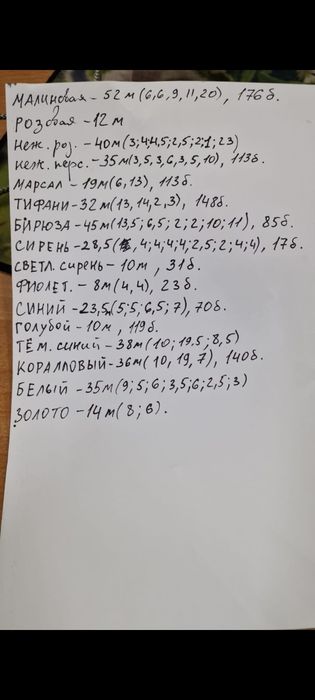 МАЛИНОВАЯ - 52 м (6,6,9,11,20), 176б.
РОЗОВАЯ - 12 м
НЕЖ. РОЗ. - 40м (3;4;4,5;2,5;2;1;23)
НЕЖ. ПЕРС. - 35м (3,5,3,6,3,5,10), 113б.
МАРСАЛ - 19м (6,13), 113б.
ТИФАНИ - 32 м (13,14,2,3), 148б.
БИРЮЗА - 45м (13,5; 6,5; 2; 2; 10; 11), 85б.
СИРЕНЬ - 28,5 ( , 4; 4; 4; 4; 2,5; 2; 4; 4), 17б.
СВЕТЛ. СИРЕНЬ - 10м, 31б.
ФИОЛЕТ. - 8м (4,4), 23б.
СИНИЙ - 23,5м (5; 5; 6,5; 7), 70б.
ГОЛУБОЙ - 10м, 119б.
ТЁМ. СИНИЙ - 38м (10; 19,5; 8,5)
КОРАЛЛОВЫЙ - 36м (10, 19, 7), 140б.
БЕЛЫЙ - 35м (9; 5; 6; 3,5; 6; 2,5; 3)
ЗОЛОТО - 14м (8; 6).